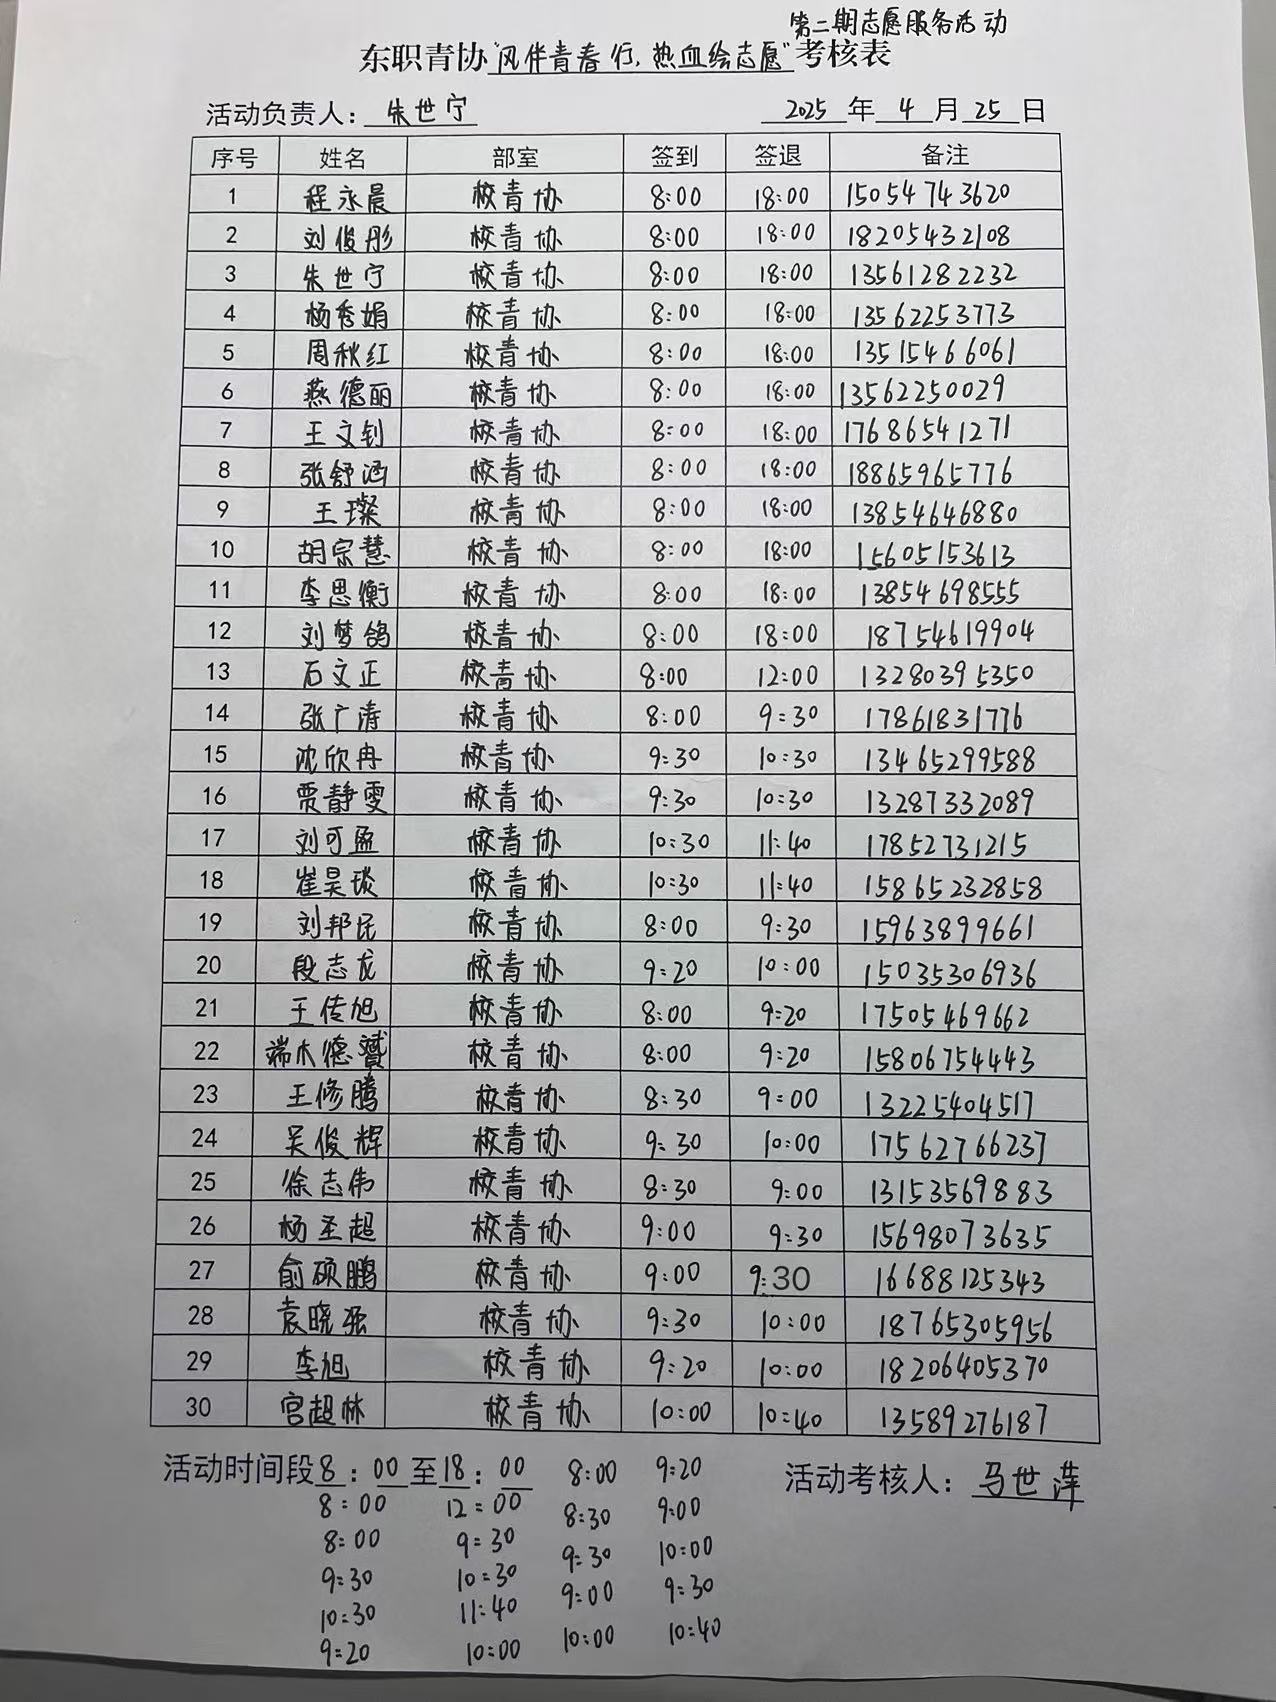 第二期志愿服务活动
东职青协“风伴青春行,热血绘志愿”考核表
活动负责人：朱世宁 2025 年 4 月 25 日
序号 姓名 部室 签到 签退 备注
1 程永晨 校青协 8:00 18:00 15054743620
2 刘俊彤 校青协 8:00 18:00 18205432108
3 朱世宁 校青协 8:00 18:00 13561282232
4 杨秀娟 校青协 8:00 18:00 13562253773
5 周秋红 校青协 8:00 18:00 13515466061
6 燕德丽 校青协 8:00 18:00 13562250029
7 王文钊 校青协 8:00 18:00 17686541271
8 张舒涵 校青协 8:00 18:00 18865965776
9 王璨 校青协 8:00 18:00 13854646880
10 胡宗慧 校青协 8:00 18:00 15605153613
11 李思衡 校青协 8:00 18:00 13854698555
12 刘梦鸽 校青协 8:00 18:00 18754619904
13 石文正 校青协 8:00 12:00 13280395350
14 张广涛 校青协 8:00 9:30 17861831776
15 沈欣冉 校青协 9:30 10:30 13465299588
16 贾静雯 校青协 9:30 10:30 13287332089
17 刘可盈 校青协 10:30 11:40 17852731215
18 崔昊琰 校青协 10:30 11:40 15865232858
19 刘邦民 校青协 8:00 9:30 15963899661
20 段志龙 校青协 9:20 10:00 15035306936
21 王传旭 校青协 8:00 9:20 17505469662
22 端木德贇 校青协 8:00 9:20 15806754443
23 王修腾 校青协 8:30 9:00 13225404517
24 吴俊辉 校青协 9:30 10:00 17562766237
25 徐志伟 校青协 8:30 9:00 13153569883
26 杨圣超 校青协 9:00 9:30 15698073635
27 俞硕鹏 校青协 9:00 9:30 16688125343
28 袁晓强 校青协 9:30 10:00 18765305956
29 李旭 校青协 9:20 10:00 18206405370
30 宫超林 校青协 10:00 10:40 13589276187
活动时间段8：00至18：00 8:00 9:20 活动考核人：马世萍
8:00 12:00 8:30 9:00
8:00 9:30 9:30 10:00
9:30 10:30 9:00 9:30
10:30 11:40 10:00 10:40
9:20 10:00